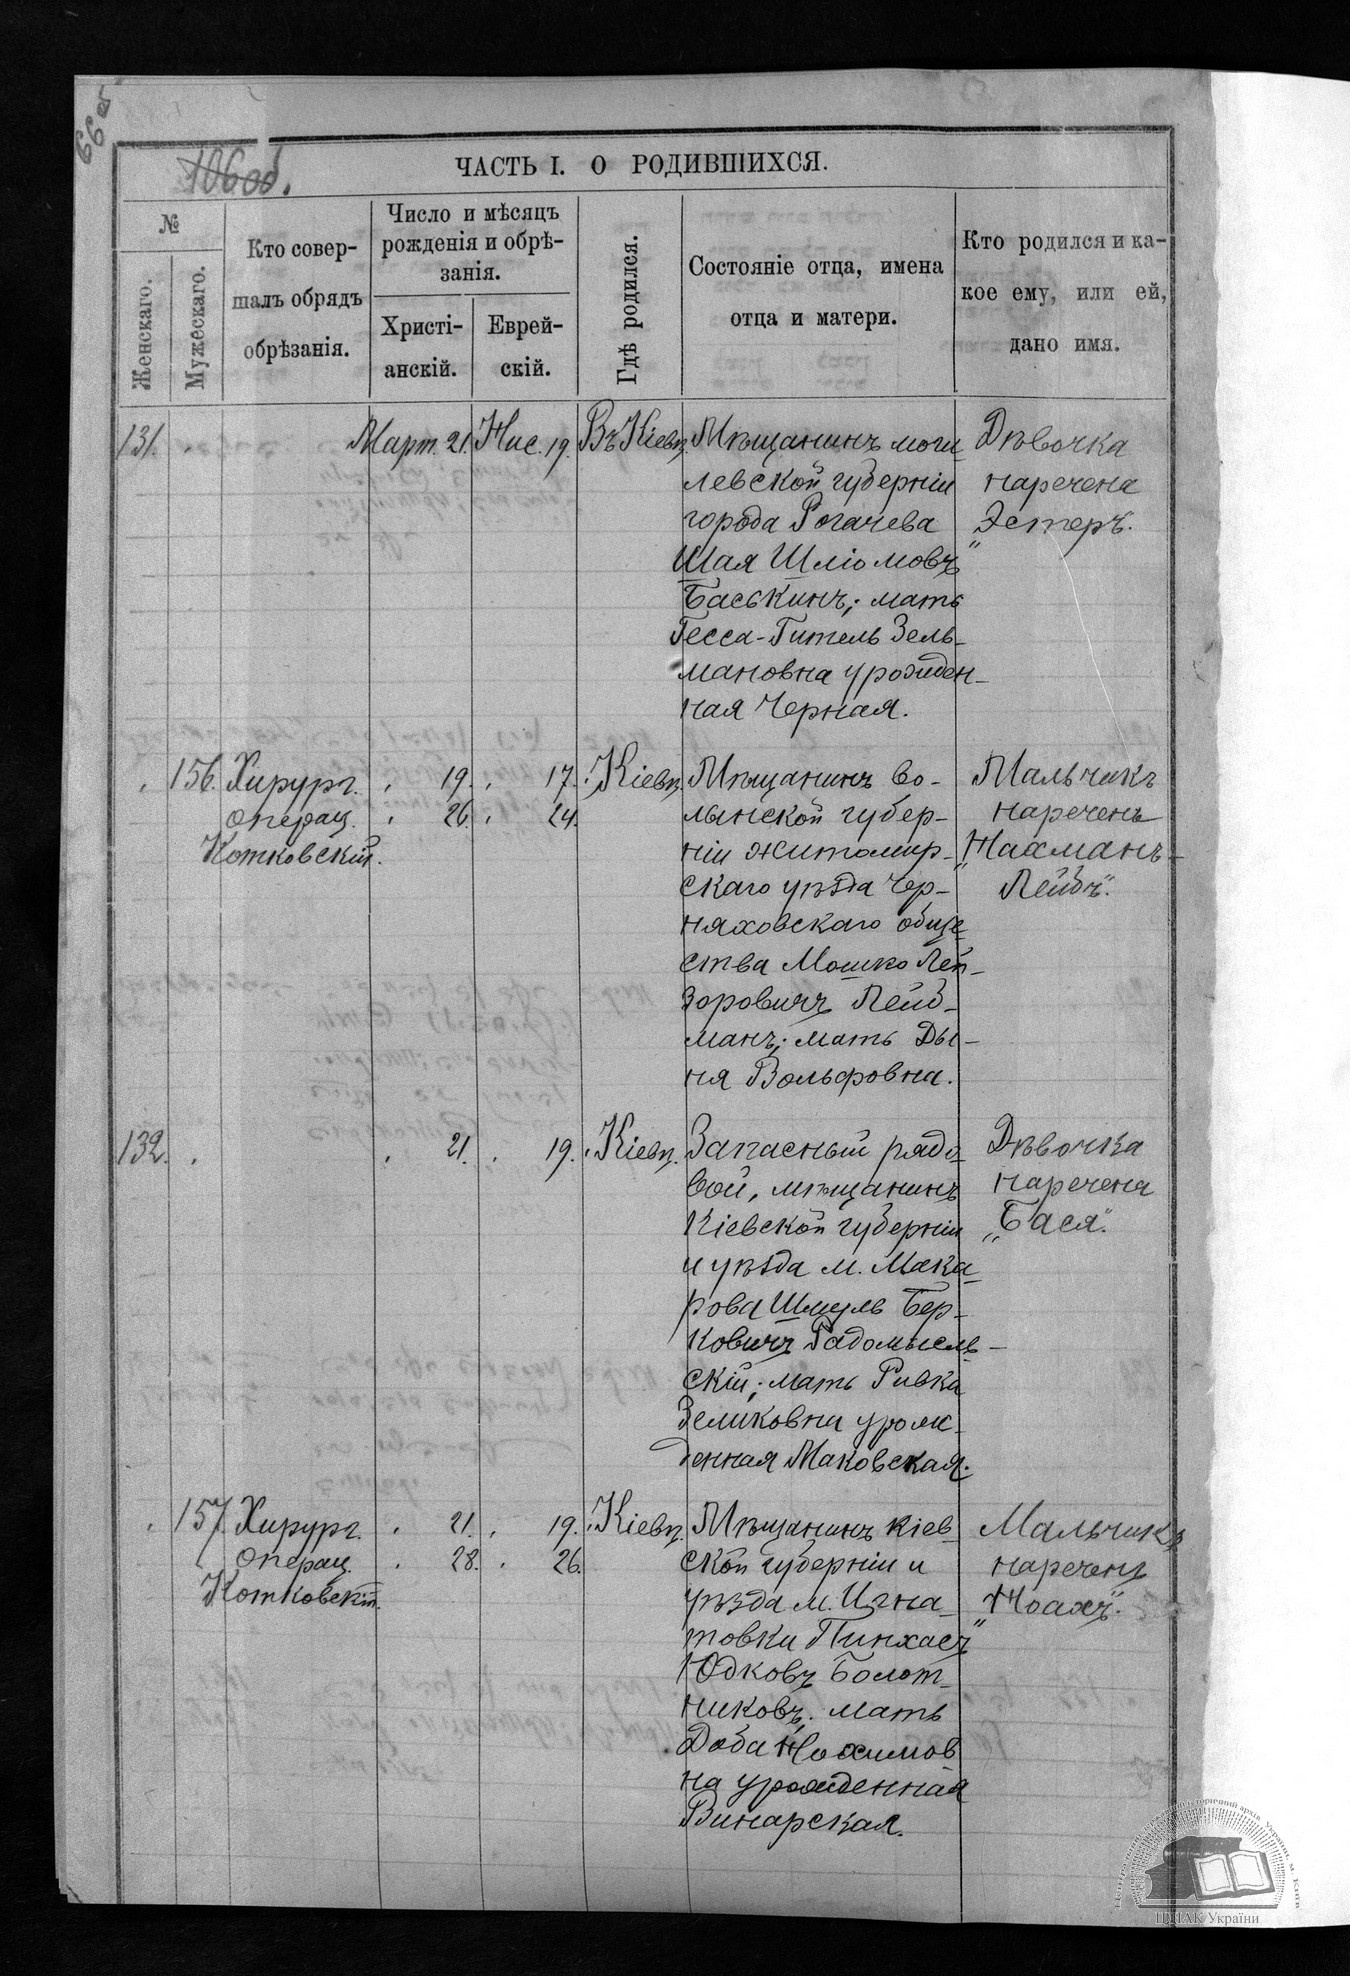 66 об
106 об.
ЧАСТЬ I. О РОДИВШИХСЯ.
№
Женскаго.
Мужескаго.
Кто совер-
шалъ обрядъ
обрѣзанія.
Число и мѣсяцъ
рожденія и обрѣ-
занія.
Христі-
анскій.
Еврей-
скій.
Гдѣ родился.
Состояніе отца, имена
отца и матери.
Кто родился и ка-
кое ему, или ей,
дано имя.
131. Март. 21. Нис. 19. Въ Кіевѣ.
Мѣщанинъ моги
левской губерніи
города Рогачева
Шая Шліомовъ
Баськинъ; мать
Гесса-Гитель Зель-
мановна урожден-
ная Черная.
Дѣвочка
наречена
„Эстеръ".
156. Хирург. 19. 17. Кіевѣ.
операц. 26. 24.
Котковскій.
Мѣщанинъ во-
лынской губер-
ніи житомир-
скаго уѣзда Чер-
няховскаго обще-
ства Мошко Лей-
зоровичъ Лейб-
манъ; мать Ды-
ня Вольфовна.
Мальчикъ
нареченъ
„Нахманъ-
Лейбъ".
132. 21. 19. Кіевѣ.
Запасный рядо-
вой, мѣщанинъ
Кіевской губерніи
и уѣзда м. Мака-
рова Шмуль Бер-
ковичъ Радомысль-
скій; мать Ривка
Зеликовна урож-
денная Маковская.
Дѣвочка
наречена
„Бася".
157. Хирург. 21. 19. Кіевѣ.
операц. 28. 26.
Котковскій.
Мѣщанинъ кіев-
ской губерніи и
уѣзда м. Игна-
товки Пинхасъ
Юдковъ Болот-
никовъ, мать
Доба Нохимов
на урожденная
Винарская.
Мальчикъ
нареченъ
„Ноахъ".
ЦДІАК України